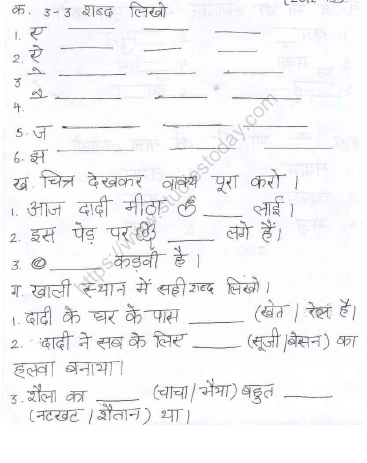 क. 3-3 शब्द लिखो
1. ए ___ ___ ___
2. ऐ ___ ___ ___
3 े ___ ___ ___
4. ै ___ ___ ___
5. ज ___ ___ ___
6. झ ___ ___ ___
ख. चित्र देखकर वाक्य पूरा करो ।
1. आज दादी मीठा ___ लाई ।
2. इस पेड़ पर ___ लगे हैं ।
3. ___ कड़वी है ।
ग. खाली स्थान में सही शब्द लिखो ।
1. दादी के घर के पास ___ (खेत / रेल है।
2. दादी ने सब के लिए ___ (सूजी / बेसन) का
हलवा बनाया ।
3. शैला का ___ (चाचा / भैया) बहुत ___
(नटखट / शैतान) था ।
https://www.studiestoday.com